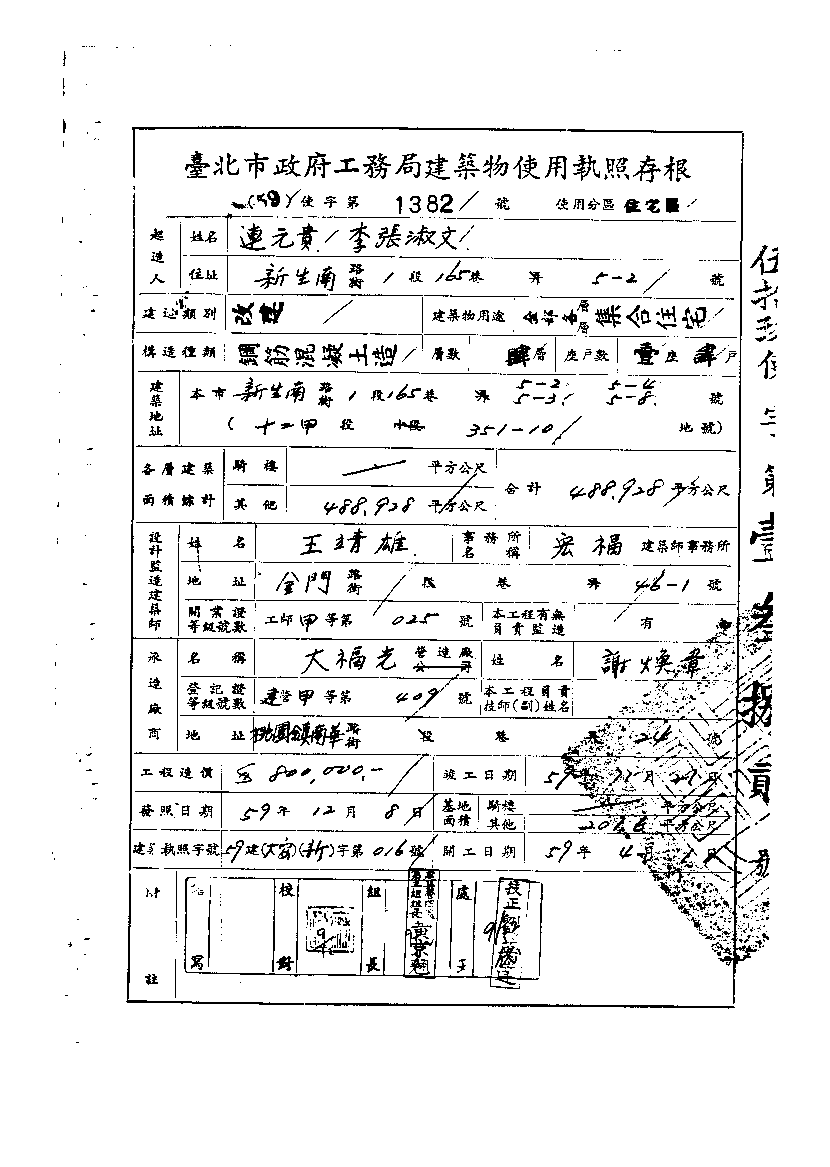 臺北市政府工務局建築物使用執照存根
(59)使字第 1382 號 使用分區 住宅區
起造人 姓名 連元貴 李張淑文
住址 新生南 路街 1 段 165 巷 弄 5-2 號
建造類別 改建 建築物用途 全部各層層 集合住宅
構造種類 鋼筋混凝土造 層數 肆層 座戶數 壹座 肆戶
建築地址 本市 新生南 路街 1 段 165 巷 弄 5-2. 5-4 5-3. 5-8. 號
(十二甲 段 小段 351-10 地號)
各層建築面積總計 騎樓 平方公尺
其他 488.928 平方公尺 合計 488.928 平方公尺
設計監造建築師 姓名 王靖雄 事務所名稱 宏福 建築師事務所
地址 金門 路街 段 巷 弄 46-1 號
開業證等級號數 工師甲等第 025 號 本工程有無負責監造 有
承造廠商 名稱 大福光 營造廠公司 姓名 謝煥章
登記證等級號數 建營甲等第 409 號 本工程負責技師(副)姓名
地址 桃園鎮南華 路街 段 巷 弄 24 號
工程造價 800,000.- 竣工日期 59年 11月 27日
發照日期 59年 12月 8日 基地面積 騎樓 平方公尺
其他 平方公尺
建築執照字號 59建(大安)(新)字第 016 號 開工日期 59年 4月 1日
附註 繕寫 校對 組長 處正
伍拾玖使字第壹叁捌貳號